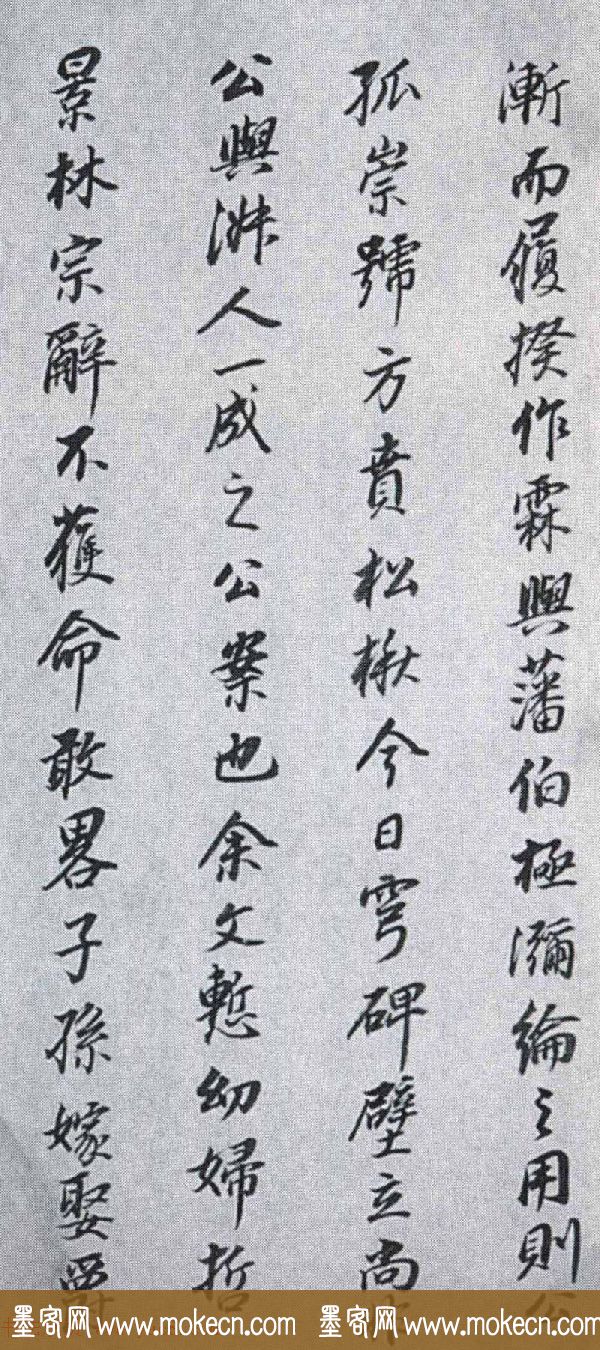 漸而履揆作霖輿藩伯極瀰綸之用則公
孤崇號方賁松楸今日穹碑壁立尚
公與淋人一成之公案也余文慙幼婦哲
景林宗辭不獲命敢畧子孫嫁娶爵
墨客网 www.mokecn.com 墨客网 www.mokecn.com